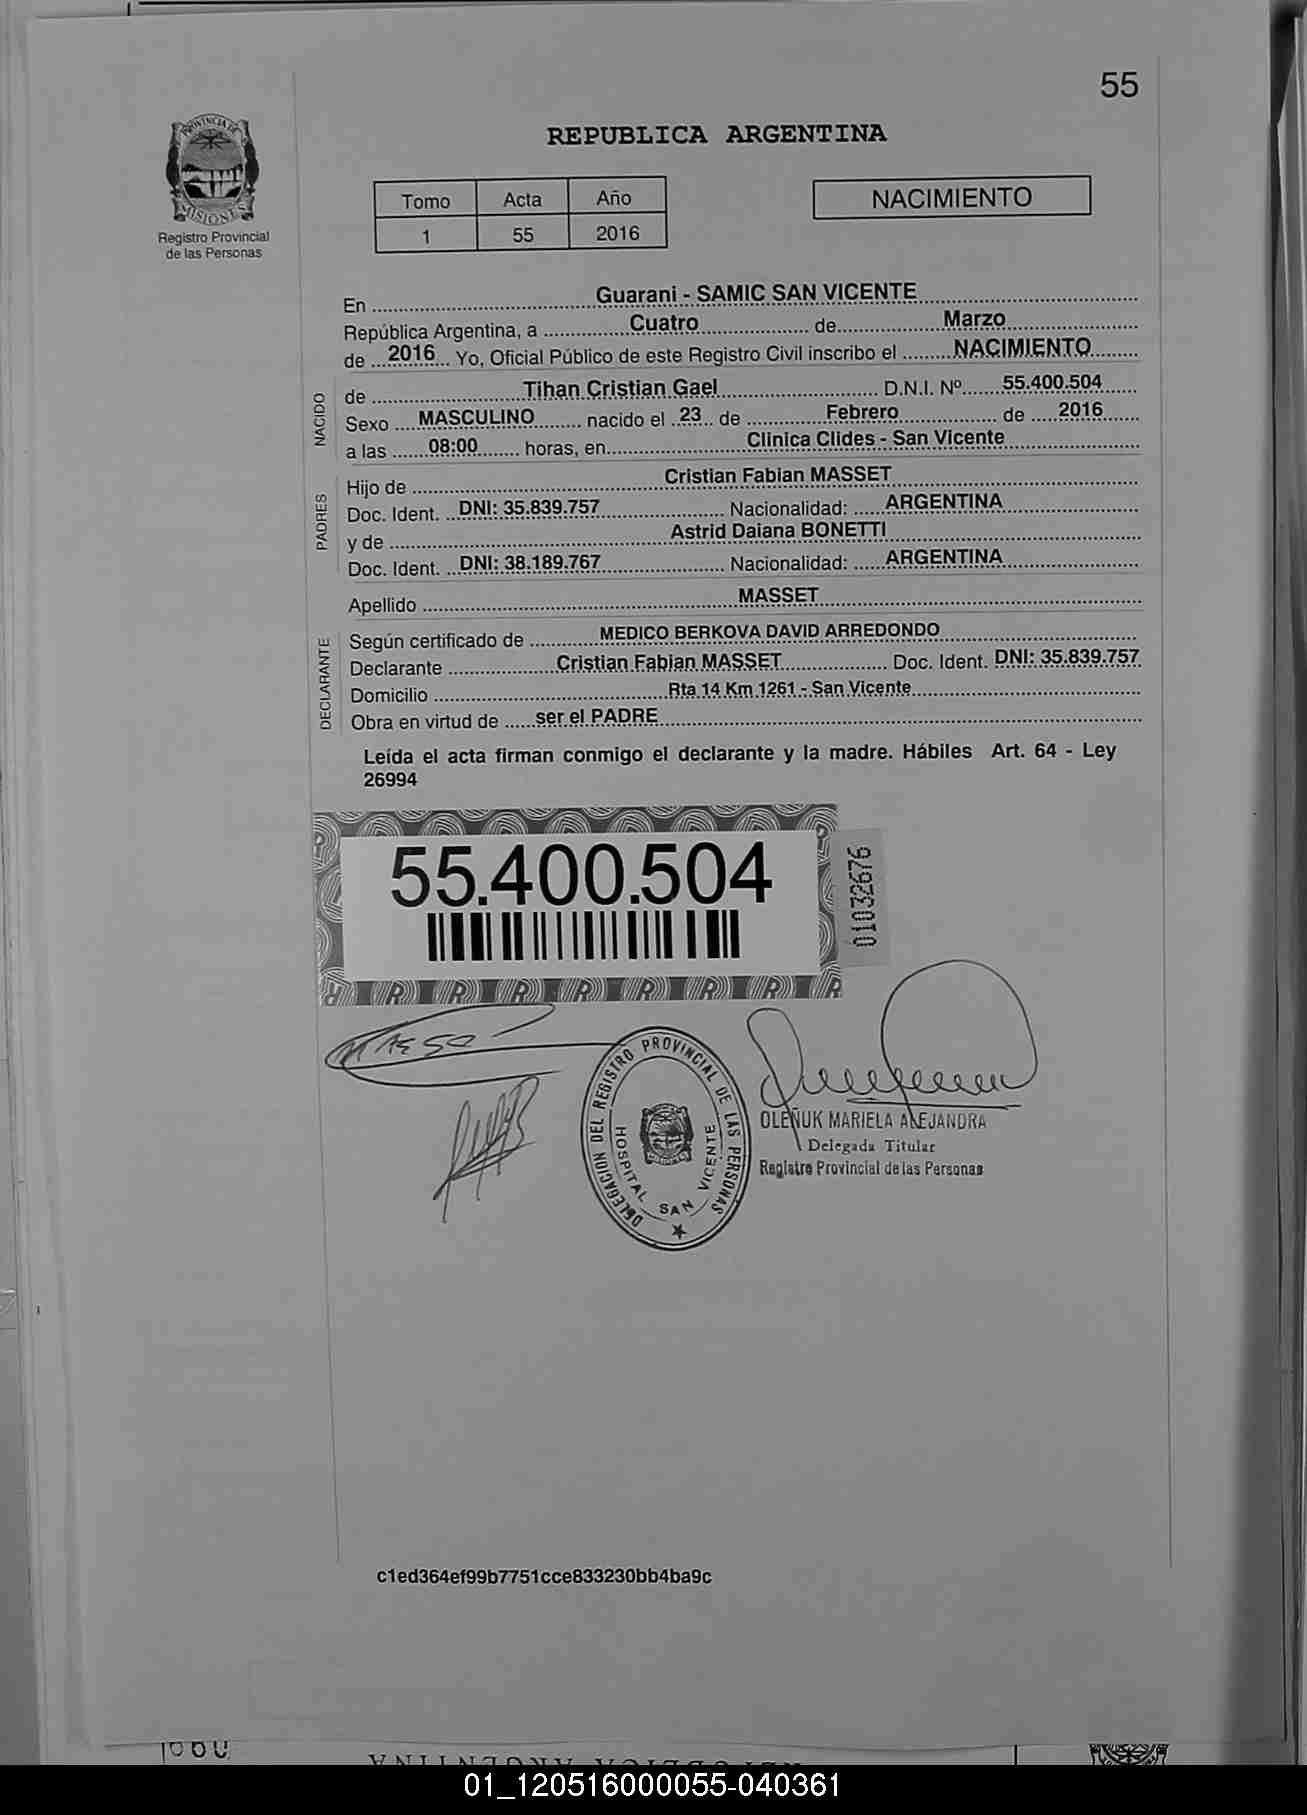 55
PROVINCIA DE
MISIONES
Registro Provincial
de las Personas
REPUBLICA ARGENTINA
Tomo Acta Año
1 55 2016
NACIMIENTO
En Guarani - SAMIC SAN VICENTE
República Argentina, a Cuatro de Marzo
de 2016 Yo, Oficial Público de este Registro Civil inscribo el NACIMIENTO
NACIDO
de Tihan Cristian Gael D.N.I. Nº 55.400.504
Sexo MASCULINO nacido el 23 de Febrero de 2016
a las 08:00 horas, en Clinica Clides - San Vicente
PADRES
Hijo de Cristian Fabian MASSET
Doc. Ident. DNI: 35.839.757 Nacionalidad: ARGENTINA
y de Astrid Daiana BONETTI
Doc. Ident. DNI: 38.189.767 Nacionalidad: ARGENTINA
Apellido MASSET
DECLARANTE
Según certificado de MEDICO BERKOVA DAVID ARREDONDO
Declarante Cristian Fabian MASSET Doc. Ident. DNI: 35.839.757
Domicilio Rta 14 Km 1261 - San Vicente
Obra en virtud de ser el PADRE
Leída el acta firman conmigo el declarante y la madre. Hábiles Art. 64 - Ley
26994
55.400.504
01032676
DELEGACION DEL REGISTRO PROVINCIAL DE LAS PERSONAS
HOSPITAL SAN VICENTE
OLEÑUK MARIELA ALEJANDRA
Delegada Titular
Registro Provincial de las Personas
c1ed364ef99b7751cce833230bb4ba9c
01_120516000055-040361